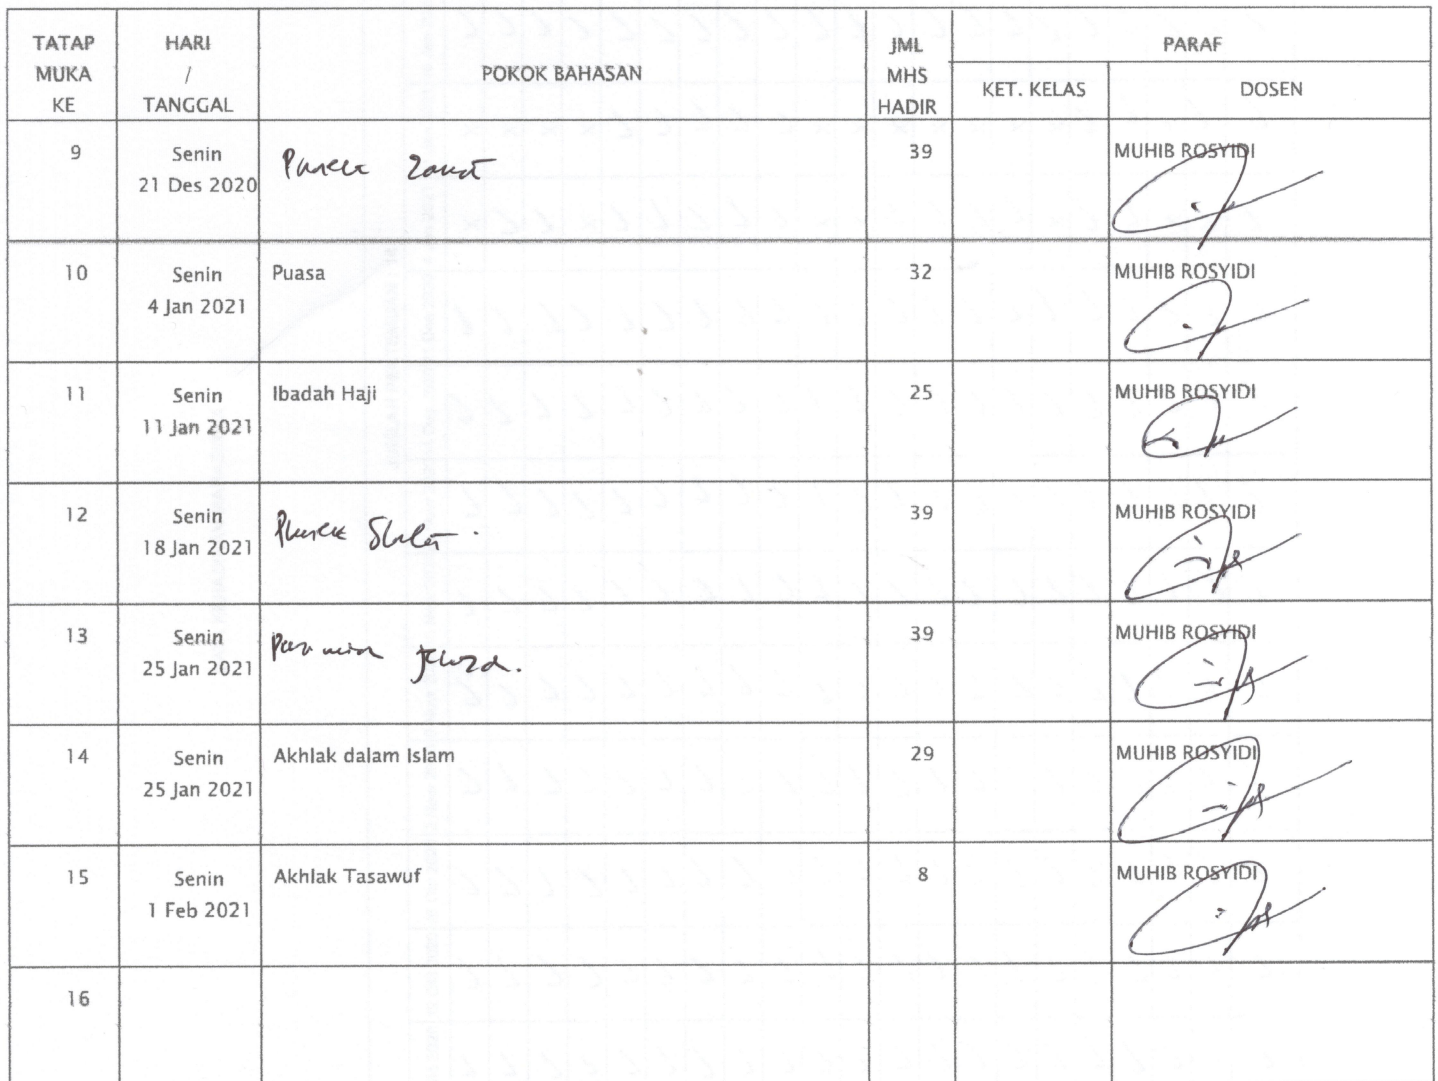 TATAP MUKA KE
HARI / TANGGAL
POKOK BAHASAN
JML MHS HADIR
PARAF
KET. KELAS
DOSEN
9
Senin
21 Des 2020
39
MUHIB ROSYIDI
10
Senin
4 Jan 2021
Puasa
32
MUHIB ROSYIDI
11
Senin
11 Jan 2021
Ibadah Haji
25
MUHIB ROSYIDI
12
Senin
18 Jan 2021
39
MUHIB ROSYIDI
13
Senin
25 Jan 2021
39
MUHIB ROSYIDI
14
Senin
25 Jan 2021
Akhlak dalam Islam
29
MUHIB ROSYIDI
15
Senin
1 Feb 2021
Akhlak Tasawuf
8
MUHIB ROSYIDI
16